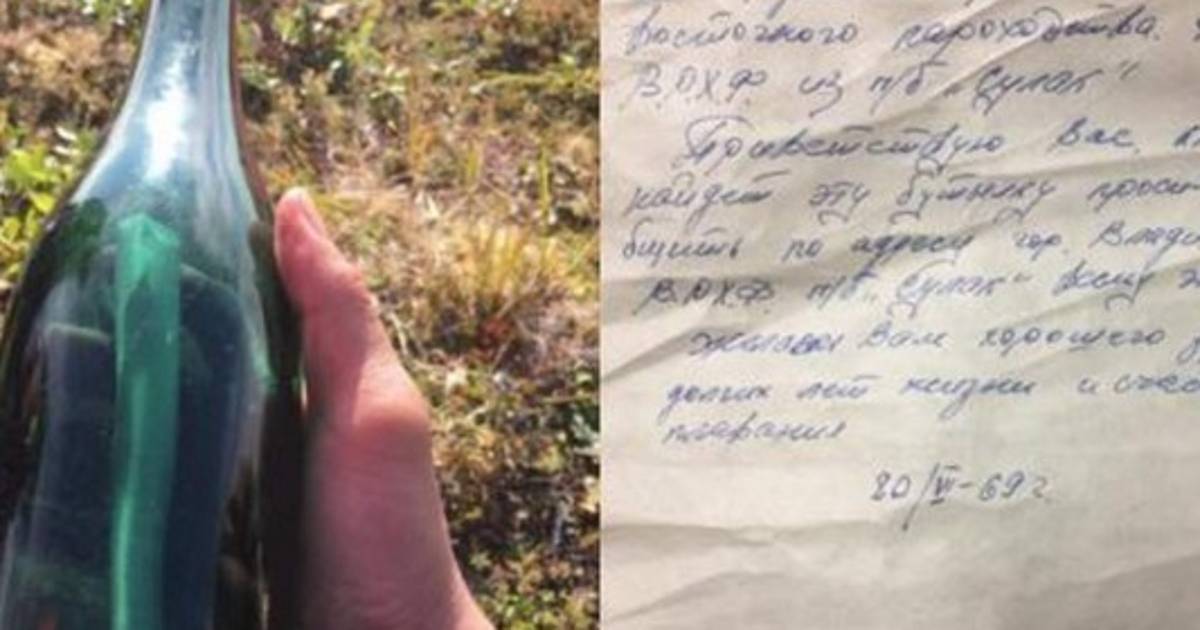 восточного пароходства.
В.О.Х.Ф. из п/б "Сулак"
Приветствую Вас,
найдет эту бутылку
бщить по адресу гор. Влади
В.О.Х.Ф. п/б "Сулак" всему
желаю Вам хорошего
долгих лет жизни и счас
плавания
20/VI-69 г.